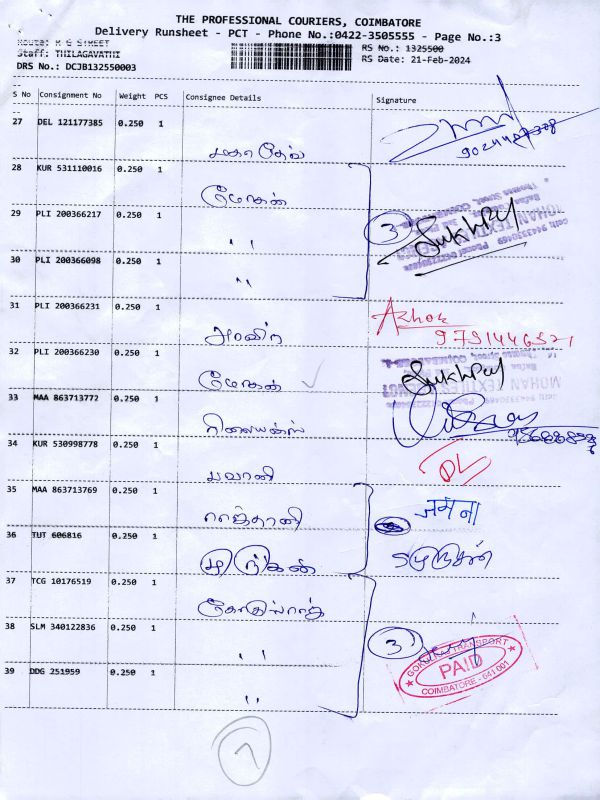 THE PROFESSIONAL COURIERS, COIMBATORE
Delivery Runsheet - PCT - Phone No.:0422-3505555 - Page No.:3
Route: M G STREET
Staff: THILAGAVATHI
DRS No.: DCJB132550003
RS No.: 1325500
RS Date: 21-Feb-2024
S No Consignment No Weight PCS Consignee Details Signature
27 DEL 121177385 0.250 1
28 KUR 531110016 0.250 1 மோகன்
29 PLI 200366217 0.250 1 " 3 Sukhpal
30 PLI 200366098 0.250 1 "
31 PLI 200366231 0.250 1 அரவிந் Ashok
9791446521
32 PLI 200366230 0.250 1 மோகன் Sukhpal
MOHAN TEXTILES
33 MAA 863713772 0.250 1 ரிலையன்ஸ்
34 KUR 530998778 0.250 1 பவானி DL
35 MAA 863713769 0.250 1 ராஜ்தானி जमना
36 TUT 606816 0.250 1 முருகன்
37 TCG 10176519 0.250 1
38 SLM 340122836 0.250 1 " 3
39 DDG 251959 0.250 1 "
TRANSPORT
PAID
COIMBATORE - 641 001
7